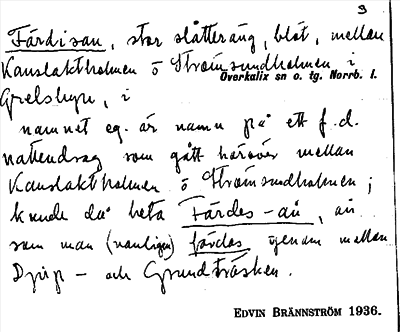 3
Färdisan, stor slåtteräng, blöt, mellan
Kanslaktholmen o Strömsundholmen i
Överkalix sn o. tg. Norrb. l.
Grelsbyn, i
namnet eg. är namn på ett f.d.
vattendrag som gått häröver mellan
Kanslaktholmen o Strömsundholmen;
kunde då heta Färdes-ån, ån
som man (nämligen) färdas igenom mellan
Djup- och Grundträsken.
EDVIN BRÄNNSTRÖM 1936.